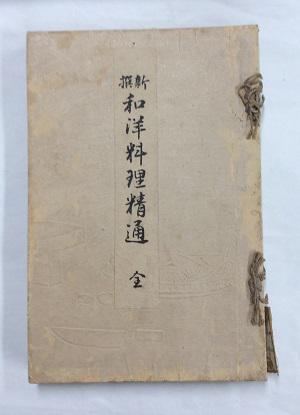 新撰
和洋料理精通 全